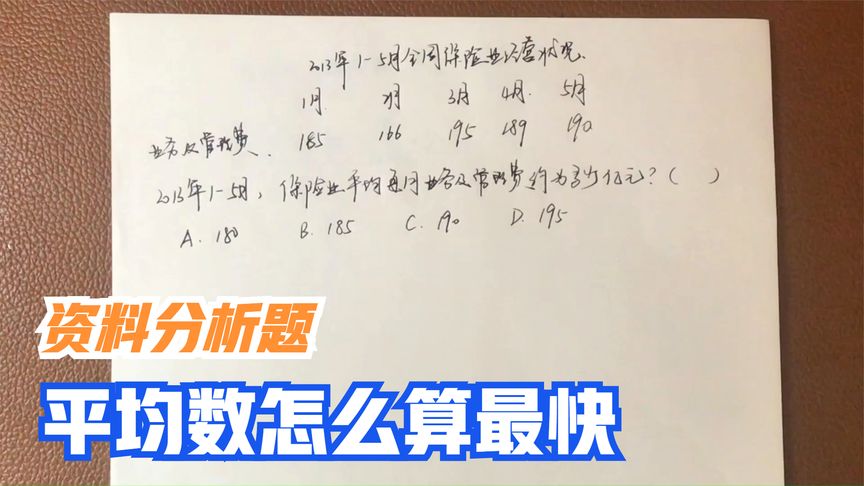 2013年1-5月全国保险业经营状况.
1月 2月 3月 4月. 5月
业务及管理费. 185 166 195 189 190
2013年1-5月,保险业平均每月业务及管理费约为多少亿元?( )
A. 180 B. 185 C. 190 D. 195
资料分析题
平均数怎么算最快